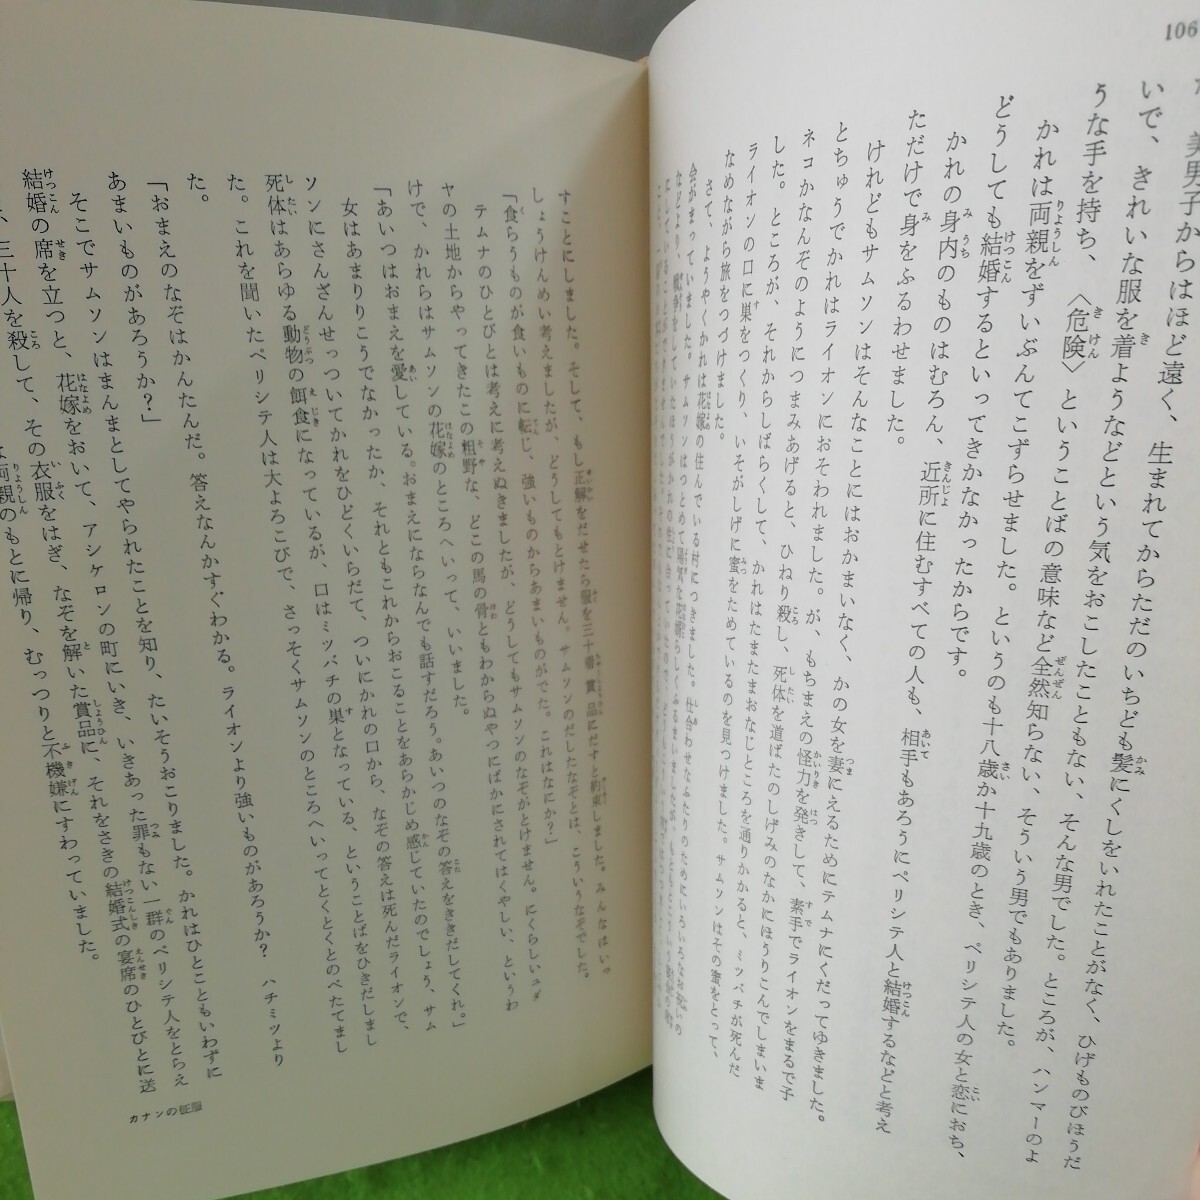 106
美男子からはほど遠く、生まれてからただのいちども髪にくしをいれたことがなく、ひげものびほうだ
いで、きれいな服を着ようなどという気をおこしたこともない、そんな男でした。ところが、ハンマーのよ
うな手を持ち、〈危険〉ということばの意味など全然知らない、そういう男でもありました。
かれは両親をずいぶんてこずらせました。というのも十八歳か十九歳のとき、ペリシテ人の女と恋におち、
どうしても結婚するといってきかなかったからです。
かれの身内のものはむろん、近所に住むすべての人も、相手もあろうにペリシテ人と結婚するなどと考え
ただけで身をふるわせました。
けれどもサムソンはそんなことにはおかまいなく、かの女を妻にえるためにテムナにくだってゆきました。
とちゅうでかれはライオンにおそわれました。が、もちまえの怪力を発きして、素手でライオンをまるで子
ネコかなんぞのようにつまみあげると、ひねり殺し、死体を道ばたのしげみのなかにほうりこんでしまいま
した。ところが、それからしばらくして、かれはたまたまおなじところを通りかかると、ミツバチが死んだ
ライオンの口に巣をつくり、いそがしげに蜜をためているのを見つけました。サムソンはその蜜をとって、
なめながら旅をつづけました。
さて、ようやくかれは花嫁の住んでいる村につきました。仕合わせなふたりのためにいろいろなお祝いの
会がまっていました。サムソンはつとめて陽気な花婿らしくふるまいましたが、
すことにしました。そして、もし正解をだせたら服を三十着賞品にだすと約束しました。みんなはいっ
しょうけんめい考えましたが、どうしてもとけません。サムソンのだしたなぞとは、こういうなぞでした。
「食らうものが食いものに転じ、強いものからあまいものがでた。これはなにか？」
テムナのひとびとは考えに考えぬきましたが、どうしてもサムソンのなぞがとけません。にくらしいユダ
ヤの土地からやってきたこの粗野な、どこの馬の骨ともわからぬやつにばかにされてはくやしい、というわ
けで、かれらはサムソンの花嫁のところへいって、いいました。
「あいつはおまえを愛している。おまえにならなんでも話すだろう。あいつのなぞの答えをききだしてくれ。」
女はあまりりこうでなかったか、それともこれからおこることをあらかじめ感じていたのでしょう、サム
ソンにさんざんせっついてかれをひどくいらだて、ついにかれの口から、なぞの答えは死んだライオンで、
死体はあらゆる動物の餌食になっているが、口はミツバチの巣となっている、ということばをひきだしまし
た。これを聞いたペリシテ人は大よろこびで、さっそくサムソンのところへいってとくとくとのべたてまし
た。
「おまえのなぞはかんたんだ。答えなんかすぐわかる。ライオンより強いものがあろうか？　ハチミツより
あまいものがあろうか？」
そこでサムソンはまんまとしてやられたことを知り、たいそうおこりました。かれはひとこともいわずに
結婚の席を立つと、花嫁をおいて、アシケロンの町にいき、いきあった罪もない一群のペリシテ人をとらえ
、三十人を殺して、その衣服をはぎ、なぞを解いた賞品に、それをさきの結婚式の宴席のひとびとに送
両親のもとに帰り、むっつりと不機嫌にすわっていました。
カナンの征服